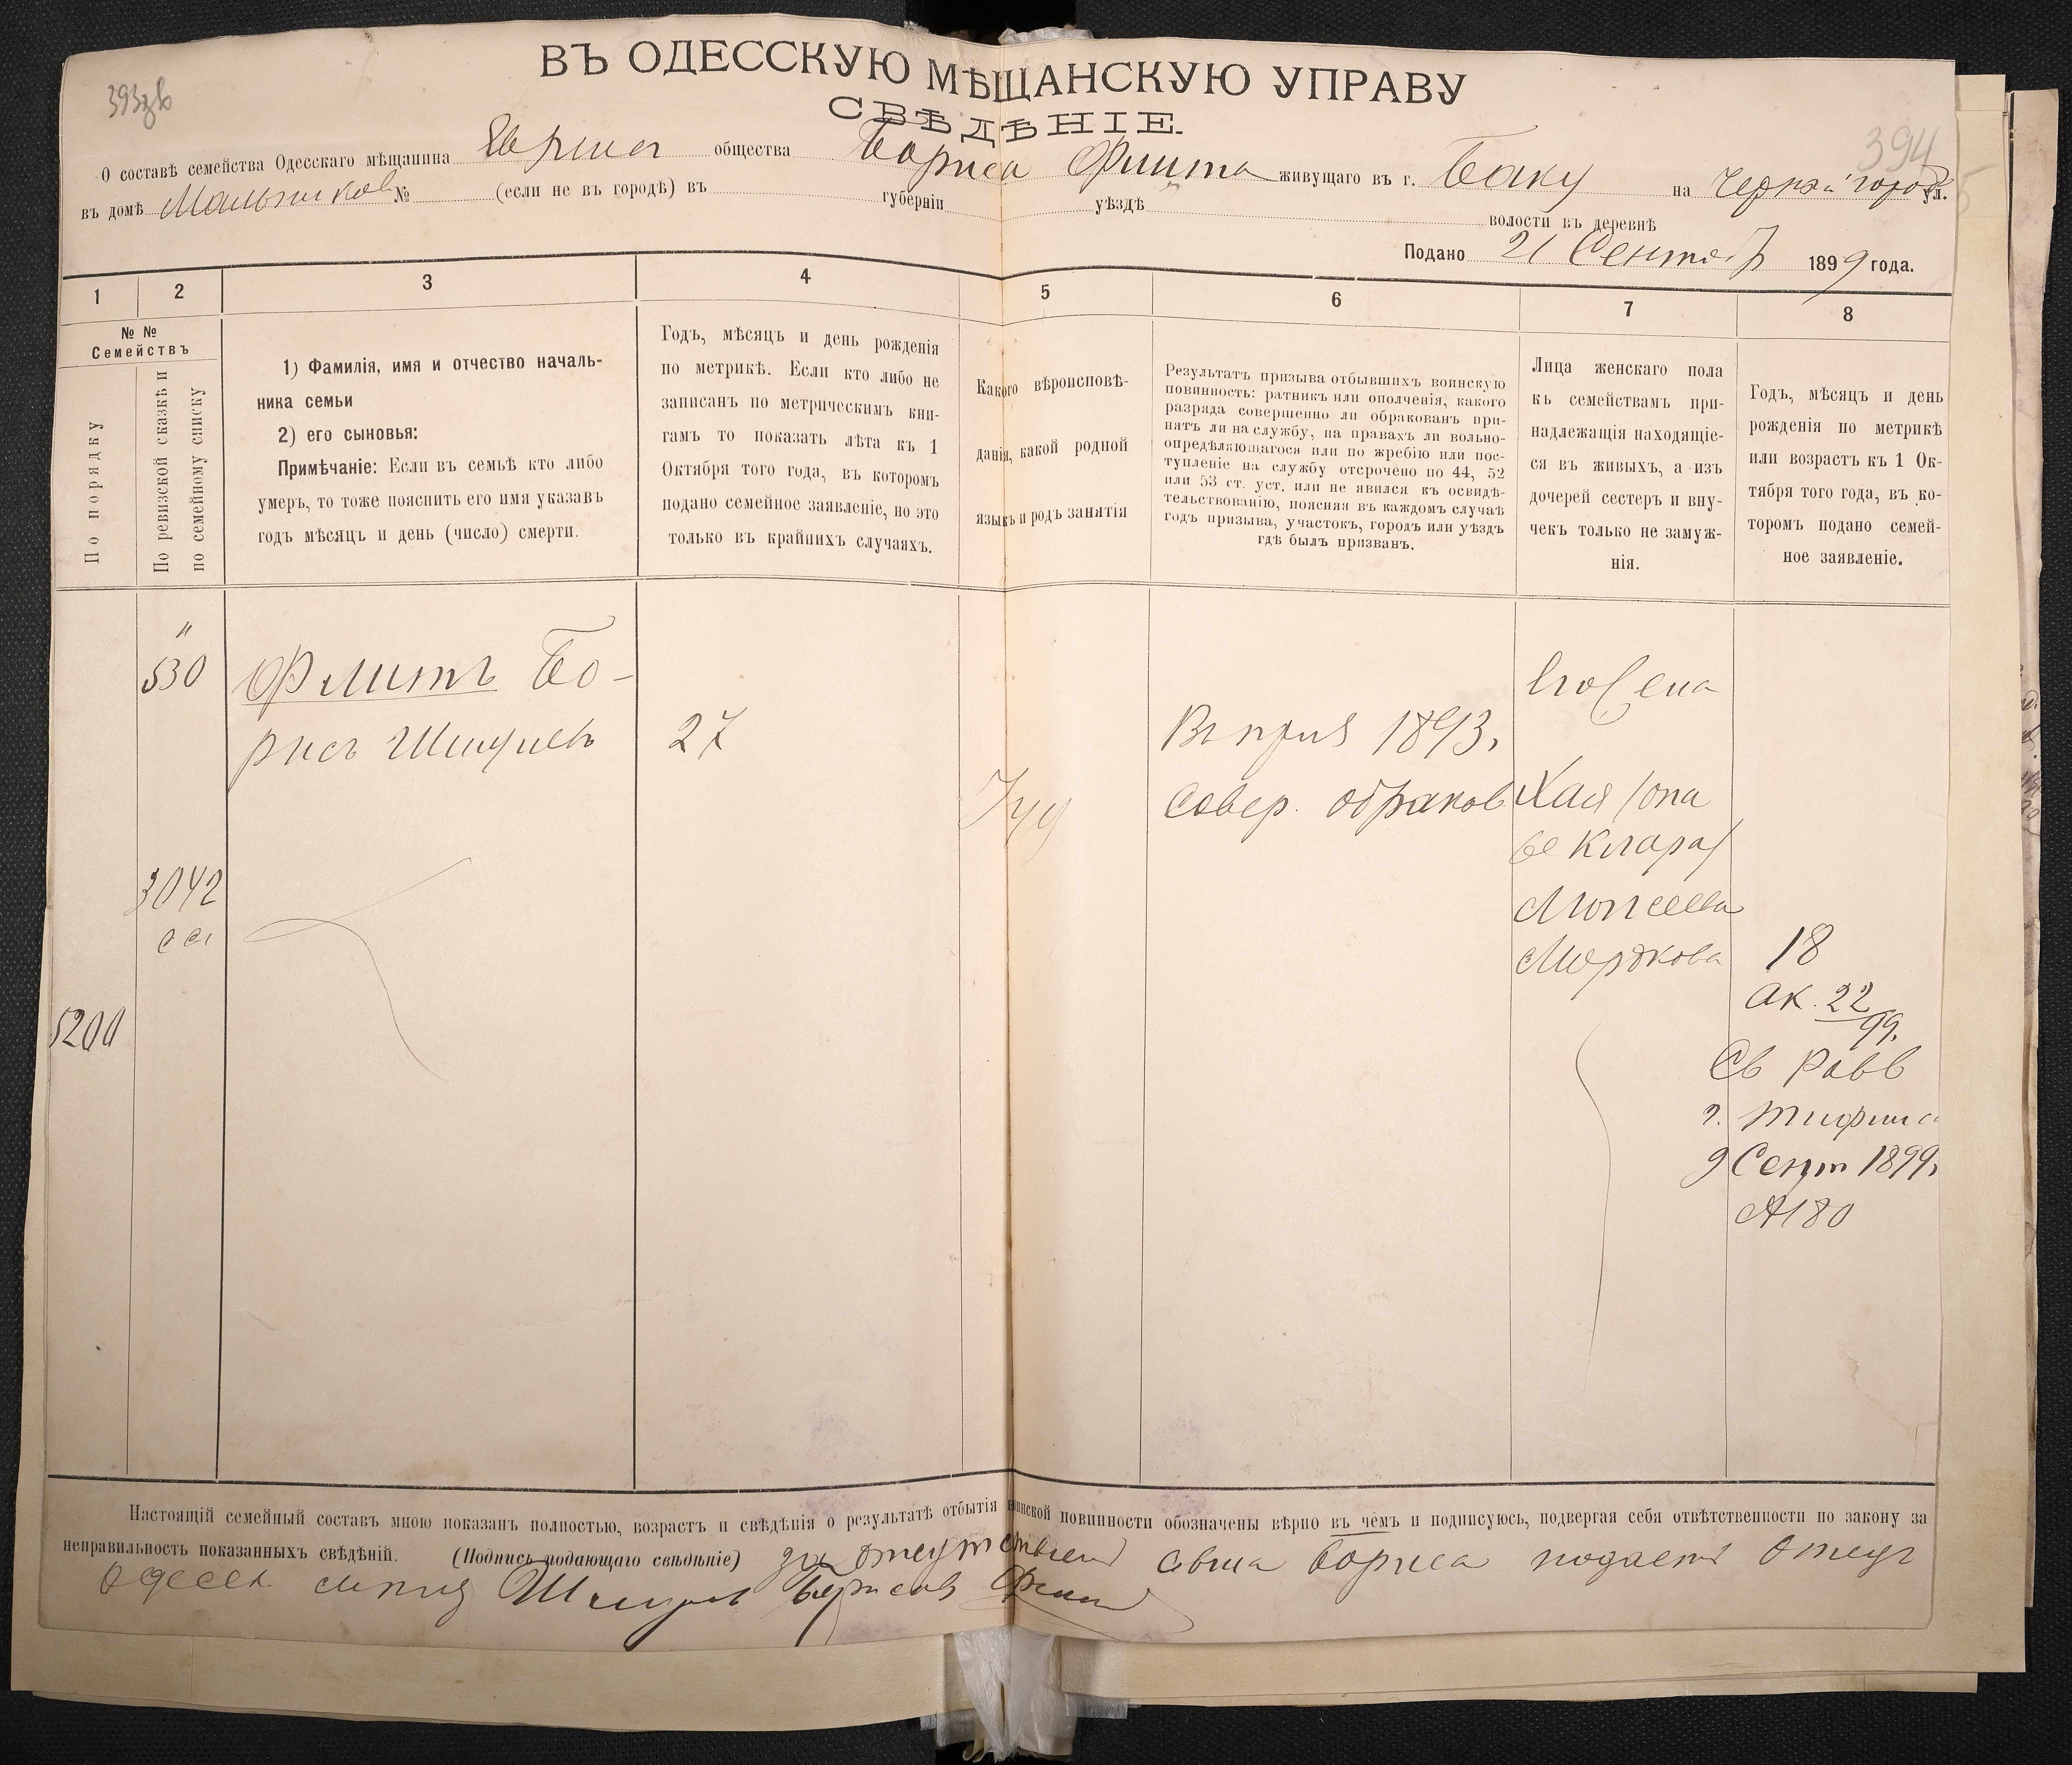 393 зв
394
ВЪ ОДЕССКУЮ МѢЩАНСКУЮ УПРАВУ
СВѢДѢНІЕ.
О составѣ семейства Одесскаго мѣщанина Еврейск общества Бориса Флита живущаго въ г. Баку на Черной город ул.
въ домѣ № (если не въ городѣ) въ губерніи уѣздѣ волости въ деревнѣ
Подано 21 Сентяб 1899 года.
1 2 3 4 5 6 7 8
№ №
Семействъ
По порядку
По ревизской сказкѣ и
по семейному списку
1) Фамилія, имя и отчество началь-
ника семьи
2) его сыновья:
Примѣчаніе: Если въ семьѣ кто либо
умеръ, то тоже пояснить его имя указавъ
годъ мѣсяцъ и день (число) смерти.
Годъ, мѣсяцъ и день рожденія
по метрикѣ. Если кто либо не
записанъ по метрическимъ кни-
гамъ то показать лѣта къ 1
Октября того года, въ которомъ
подано семейное заявленіе, но это
только въ крайнихъ случаяхъ.
Какого вѣроисповѣ-
данія, какой родной
языкъ и родъ занятія
Результатъ призыва отбывшихъ воинскую
повинность: ратникъ или ополченія, какого
разряда совершенно ли обракованъ при-
нятъ ли на службу, на правахъ ли вольно-
опредѣляющагося или по жребію или пос-
тупленіе на службу отсрочено по 44, 52
или 53 ст. уст. или не явился къ освидѣ-
тельствованію, поясняя въ каждомъ случаѣ
годъ призыва, участокъ, городъ или уѣздъ
гдѣ былъ призванъ.
Лица женскаго пола
къ семействамъ при-
надлежащія находящіе-
ся въ живыхъ, а изъ
дочерей сестеръ и вну-
чекъ только не замуж-
нія.
Годъ, мѣсяцъ и день
рожденія по метрикѣ
или возрастъ къ 1 Ок-
тября того года, въ ко-
торомъ подано семей-
ное заявленіе.
"
530
3042
5200
Флитъ Бо-
рисъ
27
Іуд
Въ приз 1893.
Совер. обраков
Его жена
Хая /она
же Клара/
Моисеева
Мордкова
18
ак. 22/99.
Св Равв
г. Тифлиса
9 Сент 1899.
№180
Настоящій семейный составъ мною показанъ полностью, возрастъ и свѣдѣнія о результатѣ отбытія воинской повинности обозначены вѣрно въ чемъ и подписуюсь, подвергая себя отвѣтственности по закону за
неправильность показанныхъ свѣдѣній. (Подпись подающаго свѣдѣніе) За отсутствіем сына Бориса подает Отец
Одесск Борисов Флит